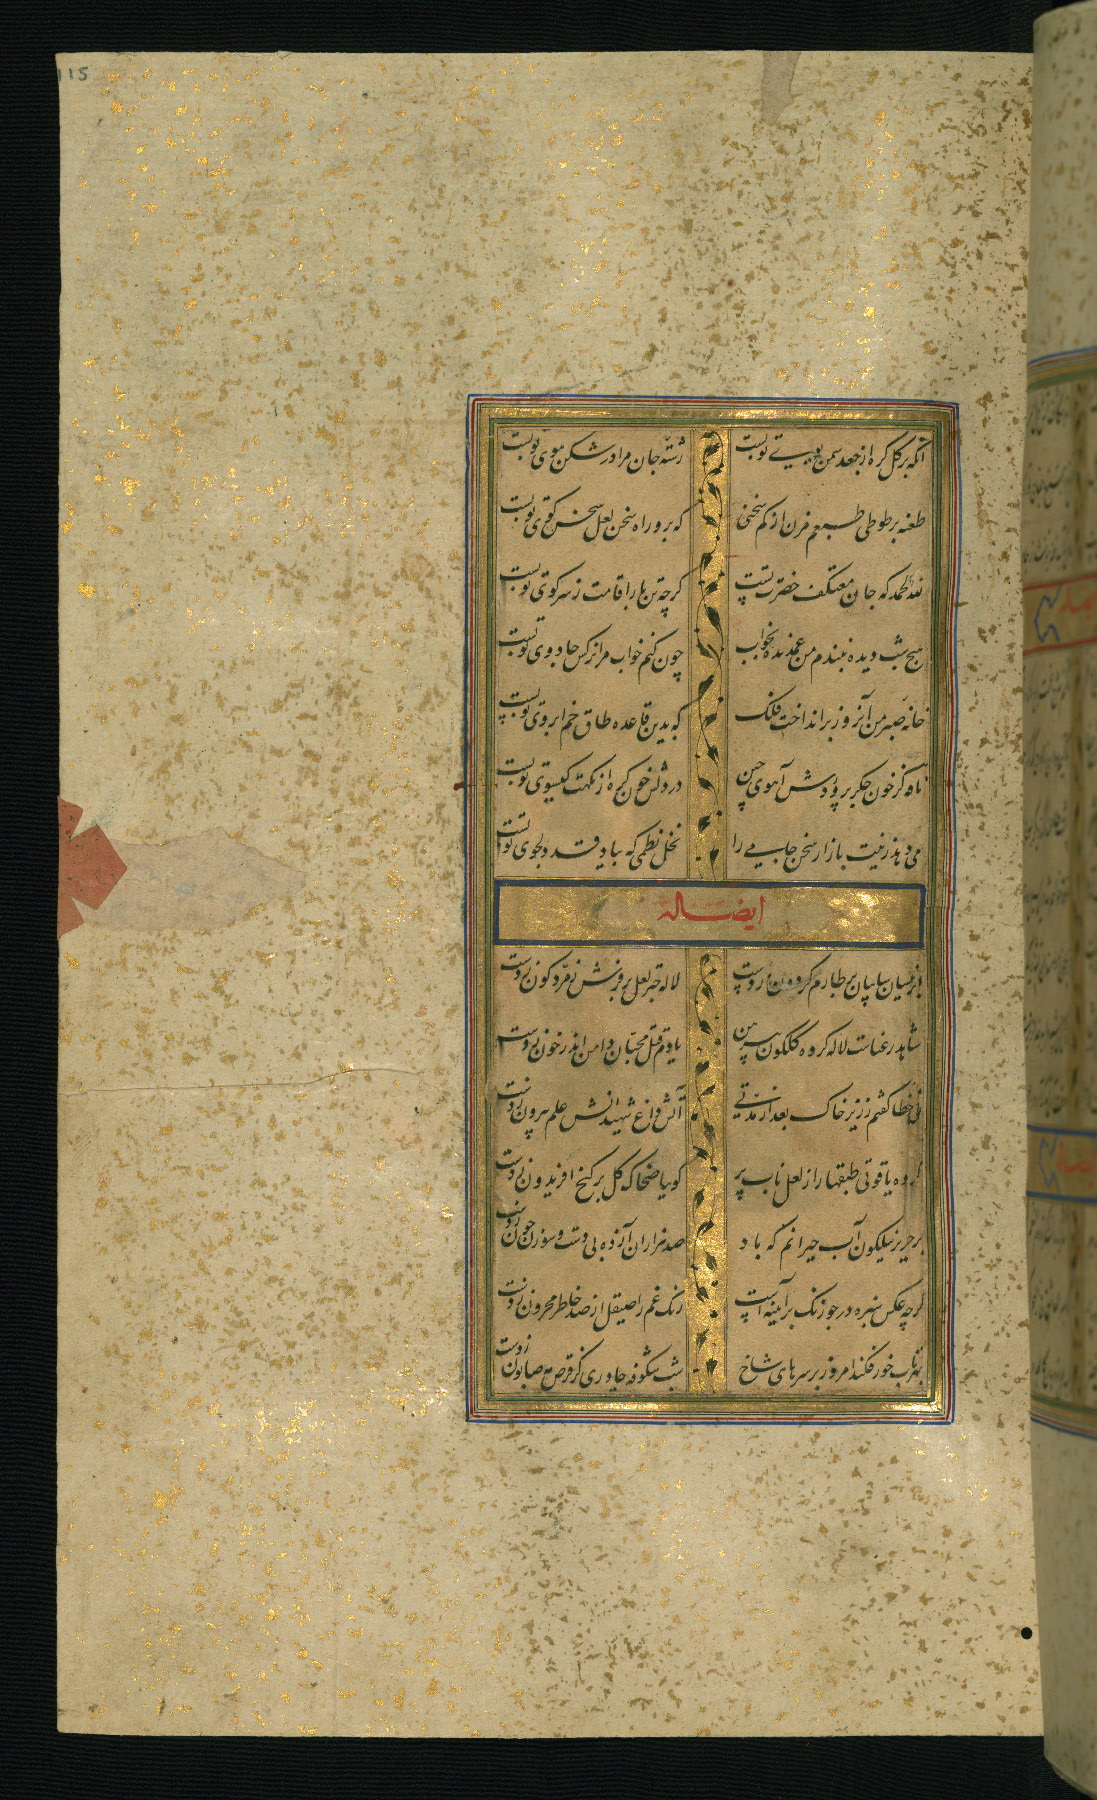 115
آنکه بر گل گره از جعد سمن بوی تو بست
رشته جان مرا در شکن موی تو بست
طعنه بر طوطی طبعم مزن از کم سخنی
که برو راه سخن لعل سخن گوی تو بست
لله الحمد که جان معتکف حضرت تست
گرچه تن بار اقامت ز سر کوی تو بست
هیچ شب دیده نبندم من غمدیده بخواب
چون کنم خواب مرا نرگس جادوی تو بست
خانه صبر من آنروز برانداخت فلک
که بدین قاعده طاق خم ابروی تو بست
نافه کز خون جگر پرورش آهوی چین
در دلش خون گره از نکهت گیسوی تو بست
می دهد زینت بازار سخن جامی را
نخل نظمی که بیاد قد دلجوی تو بست
ایضا له
باز نیسان سایبان بر طارم گردون زدست
لاله چتر لعل بر فرش زمردگون زدست
شاهد رعناست لاله کرده گلگون پیرهن
یا دم قتل محبان دامن اندر خون زدست
نی خطا گفتم ز زیر خاک بعد از مدتی
آتش داغ شهیدانش علم بیرون زدست
کرده یاقوتی طبقها را ز لعل ناب پر
گوییا ضحاک گل بر گنج افریدون زدست
بر حریر نیلگون آب حیرانم که باد
صد هزاران آژده بی دست و سوزن چون زدست
گرچه عکس سبزه در جو زنگ بر آیینه است
زنگ غم را صیقل از صد خاطر محزون زدست
بهر تاب خور فکند امروز بر سرهای شاخ
شب شکوفه چادری کز قرص مه صابون زدست